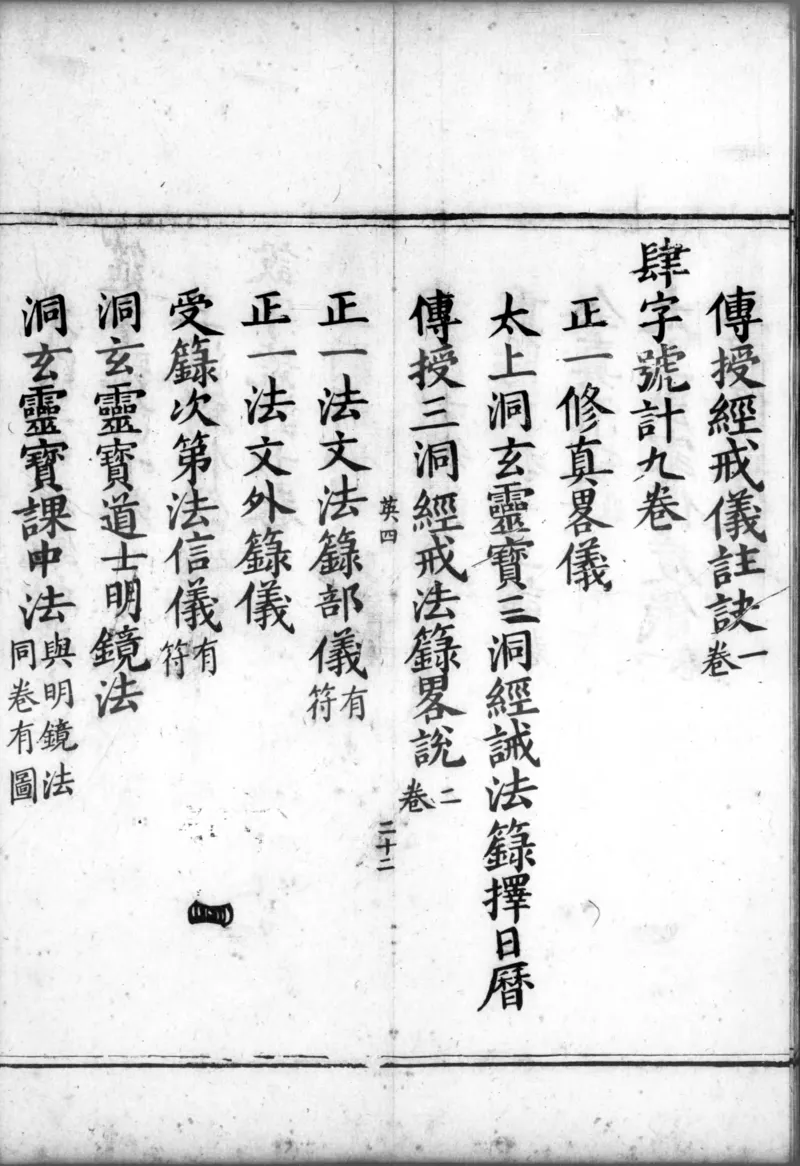 傳授經戒儀註訣一卷
肆字號計九卷
正一修真畧儀
太上洞玄靈寶三洞經誡法籙擇日曆
傳授三洞經戒法籙畧說二卷
英四 二十二
正一法文法籙部儀有符
正一法文外籙儀
受籙次第法信儀有符
洞玄靈寶道士明鏡法
洞玄靈寶課中法與明鏡法同卷有圖